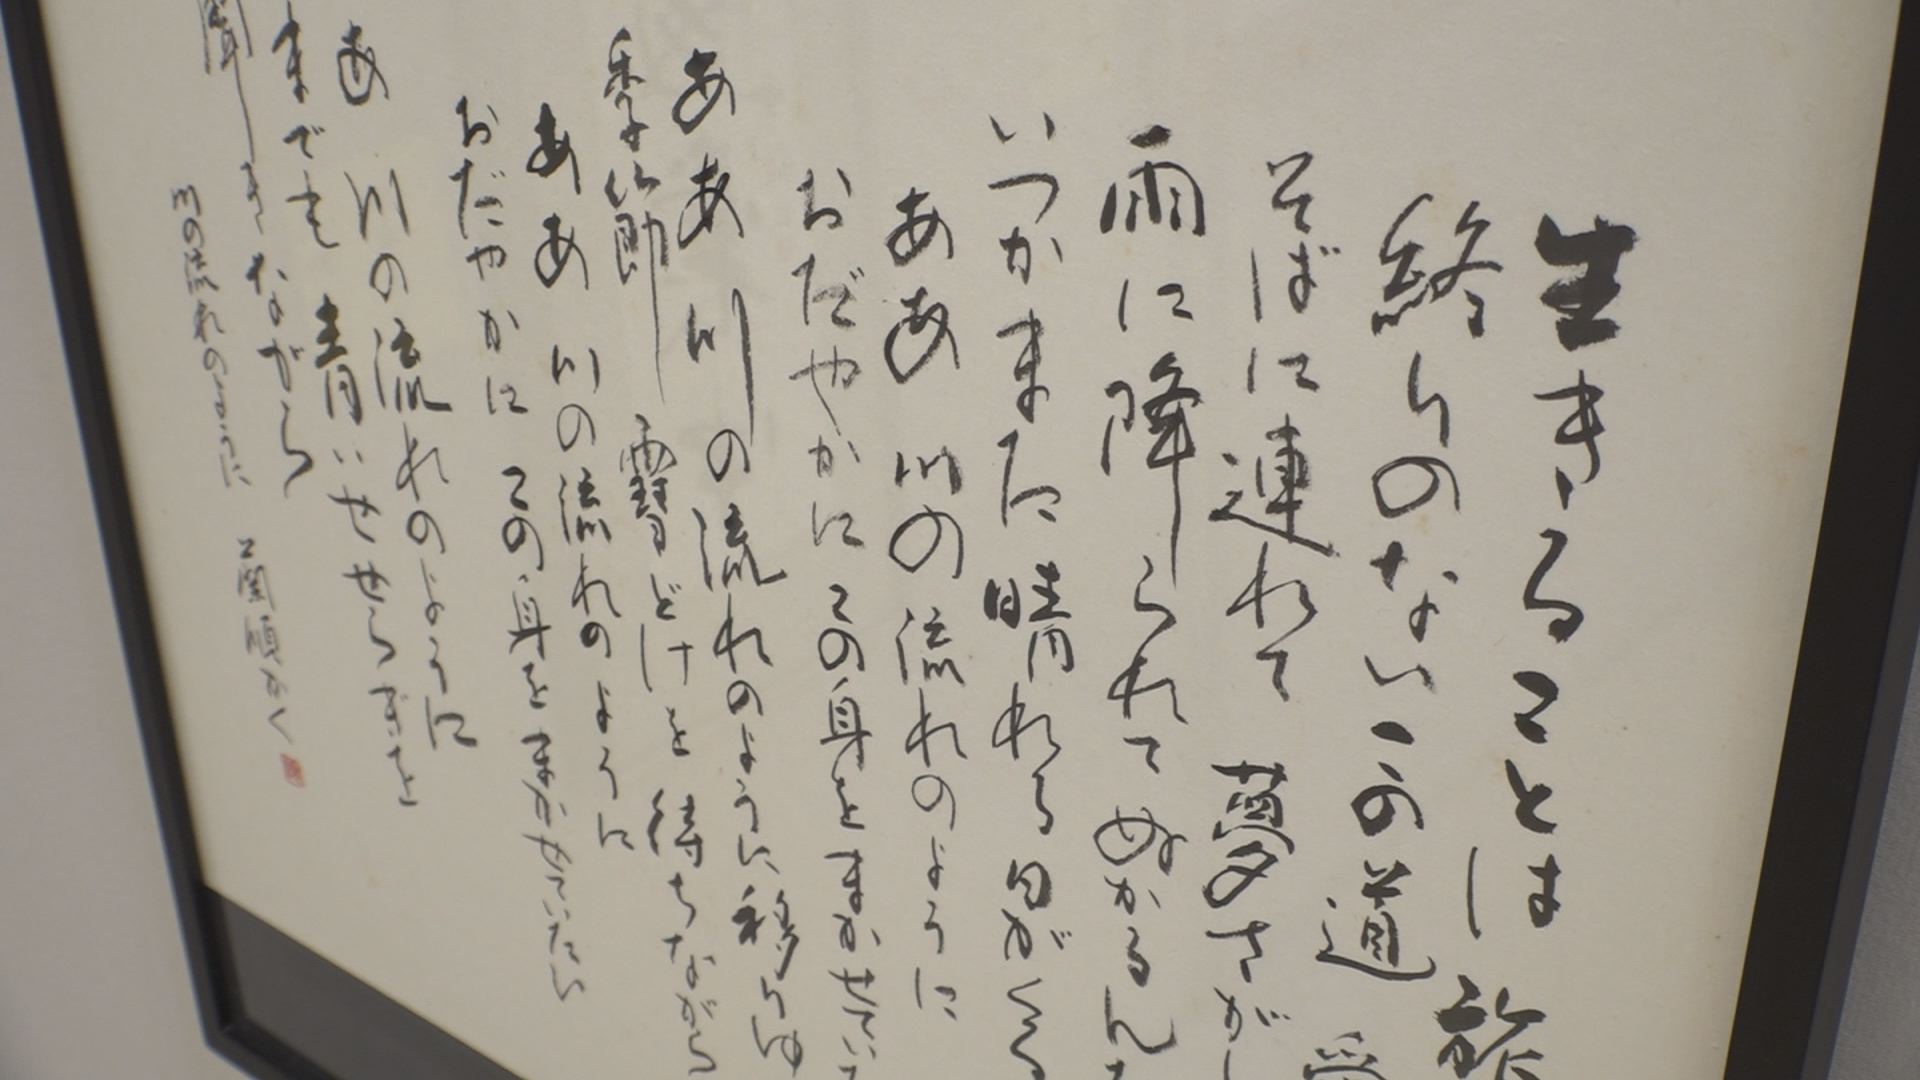 生きることは 旅
終りのない この道 愛
そばに連れて 夢さがし
雨に降られて ぬかるんだ
いつかまた 晴れる日がくる
ああ 川の流れのように
おだやかに この身をまかせてい
ああ 川の流れのように 移りゆ
季節 雪どけを待ちながら
ああ 川の流れのように
おだやかに この身をまかせていたい
あ 川の流れのように
までも 青いせせらぎを
聞きながら
川の流れのように